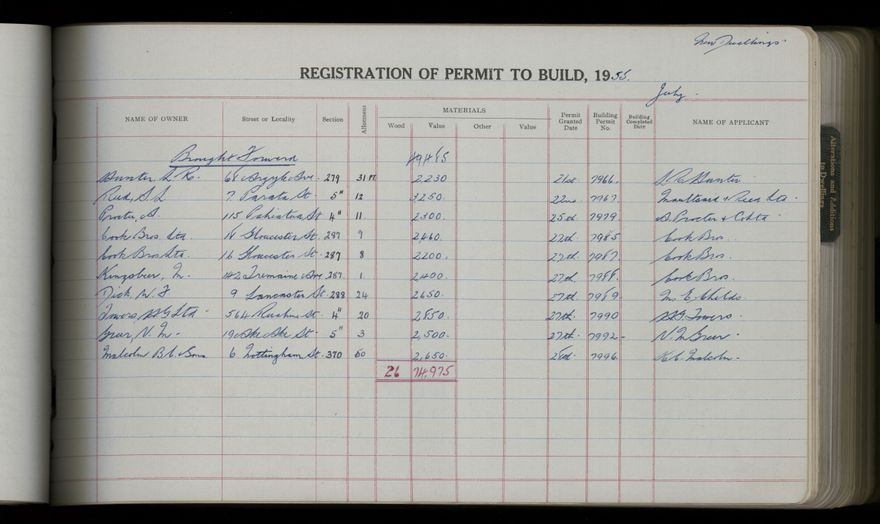 New Dwellings
REGISTRATION OF PERMIT TO BUILD, 1955.
July.
NAME OF OWNER Street or Locality Section Allotment MATERIALS Permit Granted Date Building Permit No. Building Completed Date NAME OF APPLICANT
Wood Value Other Value
Brought Forward 49,485
Hunter L. R. 68 Argyle Ave. 279 31 Pt 2,230 21st 7966. L R Hunter
Reid, S. L ? Parata St. 5" 12 3250. 22nd 7967. Maitland + Reid Ltd.
Procter, A. 115 St 4" 11 2300. 25th 7979. A. Procter & Co Ltd
Cook Bros Ltd. 14 Gloucester St. 287 9 2460. 27th 7985. Cook Bros.
Cook Bros Ltd. 16 Gloucester St. 287 8 2200. 27th 7987. Cook Bros.
M. 142 Tremaine Ave 287 1. 2400. 27th 7988. Cook Bros.
Dick, W. F 9 Lancaster St. 288 24 2650. 27th 7989. M. E. Childs.
Towers, Ltd 564 Ruahine St. 4" 20 2850. 27th. 7990 Towers
Greer, N. M. St. 5" 3 2,500. 27th. 7992. N. M Greer.
Malcolm & Sons 6 Nottingham St. 370 60 2,650. 7996. Malcolm.
26 74,975
Alterations and Additions to Dwellings